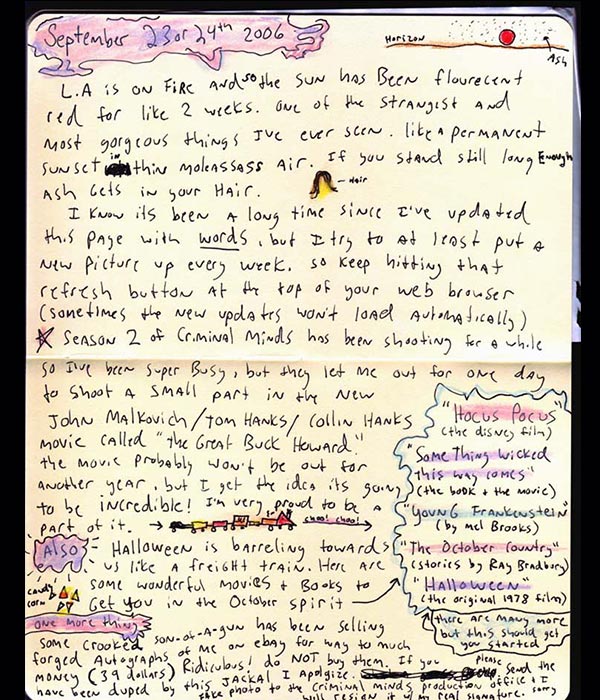 September 23 or 24th 2006
Horizon
Ash
L.A is on Fire and so the sun has Been flourecent
red for like 2 weeks. one of the strangest and
most gorgeous things I've ever seen. like a permanent
sunset in thin moleassass air. If you stand still long Enough
Ash Gets in your Hair.
Hair
I know its been a long time since I've updated
this page with words, but I try to at least put a
new picture up every week. so keep hitting that
refresh button at the top of your web browser
(sometimes the new updates won't load automatically)
Season 2 of Criminal Minds has been shooting for a while
so I've been super Busy, but they let me out for one day
to shoot a small part in the new
John Malkovich/Tom Hanks/Collin Hanks
movie called "the Great Buck Howard"
the movie probably won't be out for
another year, but I get the idea its going
to be incredible! I'm very proud to be a
part of it.
choo! choo!
Also - Halloween is barreling towards
us like a freight train. Here are
some wonderful movies & Books to
Get you in the October spirit
candy corn
"Hocus Pocus"
(the disney film)
"Something wicked
this way comes"
(the book & the movie)
"Young Frankenstein"
(by Mel Brooks)
"The October Country"
(stories by Ray Bradbury)
"Halloween"
(the original 1978 film)
there are many more
but this should get
you started
one more thing
some crooked son-of-a-gun has been selling
forged Autographs of me on ebay for way to much
money (39 dollars) Ridiculous! do NOT buy them. If you
have been duped by this JACKAL I Apolgize. please send the
fake photo to the Criminal minds production office & I
will resign it my real